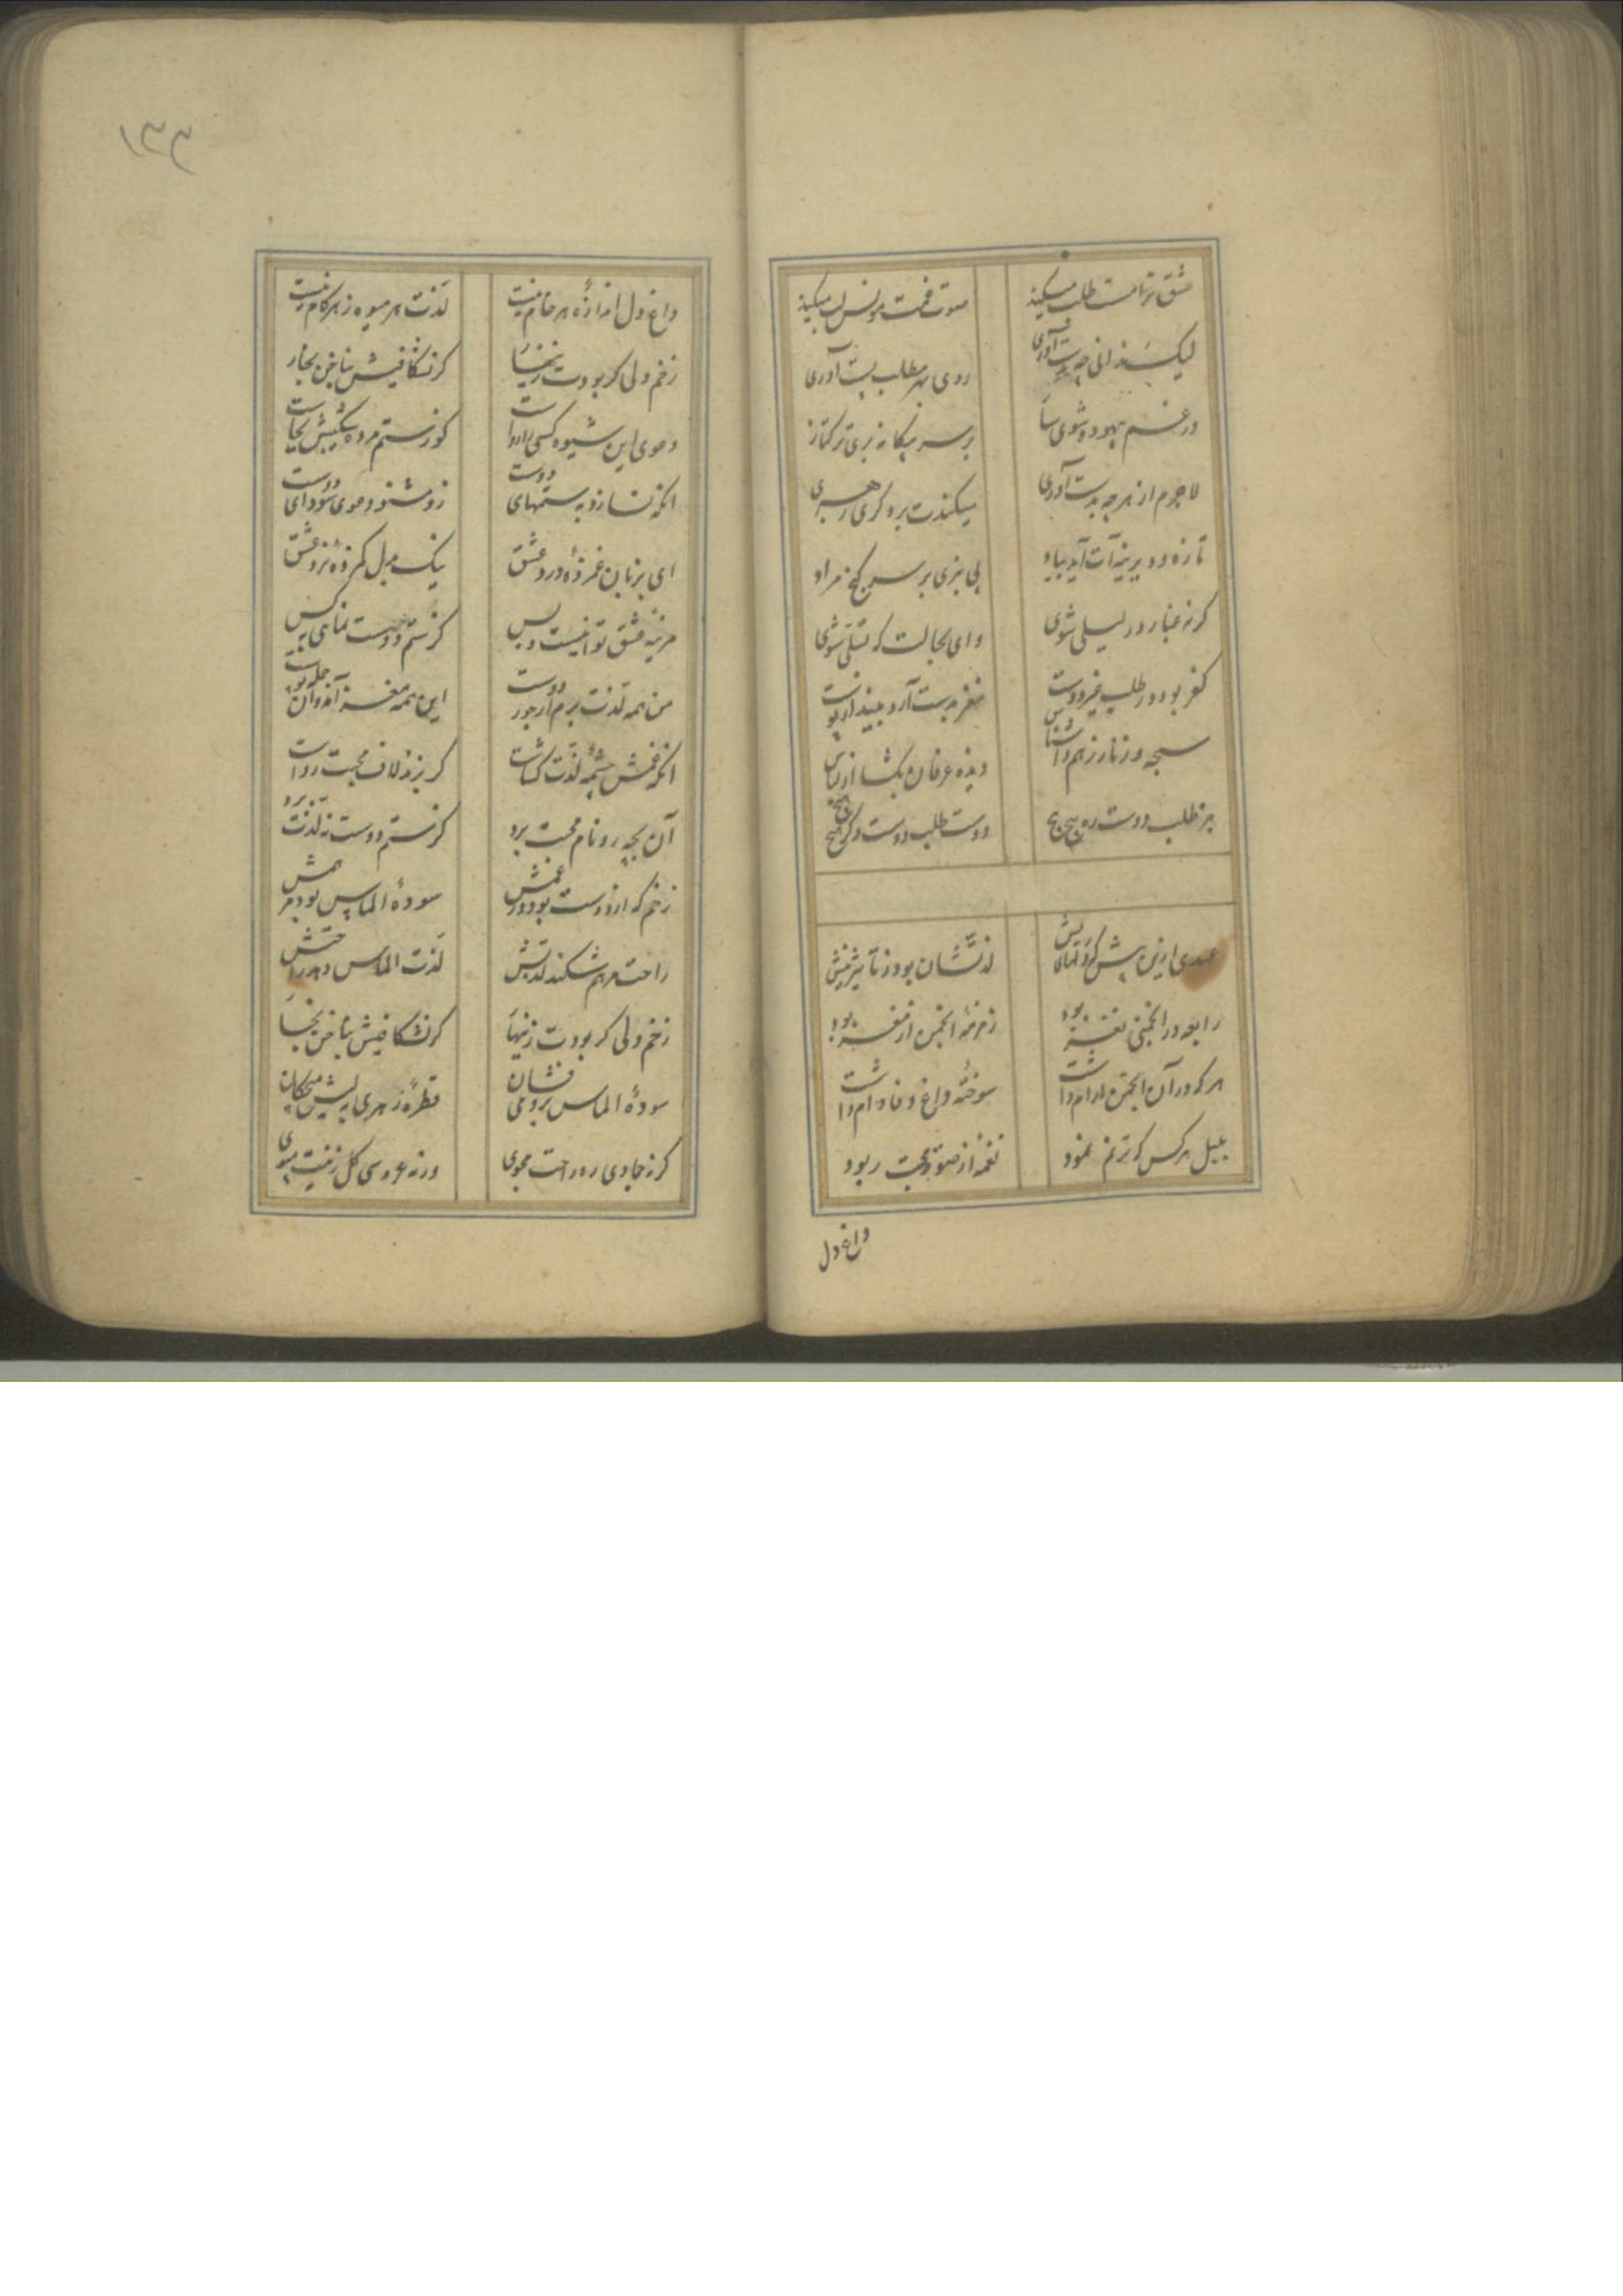 عشق ترا مست طلب میکند
صوت غمت مونس لب میکند
لیک ندانی چه بدست آوری
روی بهر مطلب پست آوری
در غم بیهوده شوی
بر سر بیکانه بری ترکتاز
لاجرم از هر چه بدست آوری
میکندت بر دکری رهبری
تازه و دیرینه آید بیاد
پی نبری بر سر کنج مراد
کر نه غبار در لیلی شوی
وای بحالت که تسلی شوی
کفر بود در طلب غیر دوست
مغز بدست آرد پوست
سبحه و زنار ز هم وا شناس
دیده عرفان بکشا از لباس
جز طلب دوست ره هیچ هیچ
دوست طلب دوست دکر هیچ هیچ
عهدی ازین پیش که دلهای ریش
لذتشان بود ز تاثیر نیش
رابعه در انجمنی نغز بود
زمزمه انجمن از مغز بود
هر که در آن انجمن آرام داشت
سوخته داغ وفا دام داشت
بلبل هر کس که ترنم نمود
نغمه از صوت محبت ربود
داغ دل
۱۳۳
داغ دل اندازه هر خام نیست
لذت هر میوه ز هر کام نیست
زخم دلی کر بودت زینهار
کر نشکافیش بناخن بخار
دعوی این شیوه کسی را رواست
کوز ستم مرده شکیبش بجاست
انکه نسازد به ستمهای دوست
زو مشنو دعوی سودای دوست
ای بزبان غمزده درد عشق
لیک بدل کم زده نرد عشق
مرتبه عشق تو اینست و بس
کز ستم دوست
من همه لذت برم از جور دوست
این همه مغز آمد و آن جمله پوست
انکه غمش چشمه لذت کشاست
کر بزند لاف محبت رواست
آن بچه رو نام محبت برد
کز ستم دوست نه لذت برد
زخم که از دوست بود در غمش
سوده الماس بود مرهمش
راحت مرهم شکند لذتش
لذت الماس دهد راحتش
زخم دلی کر بودت زینهار
کر نشکافیش بناخن بخار
سوده الماس برو می فشان
قطره زهری به لبش میچکان
کر نه جمادی ره راحت مجوی
ورنه عروسی کل زینت مبوی